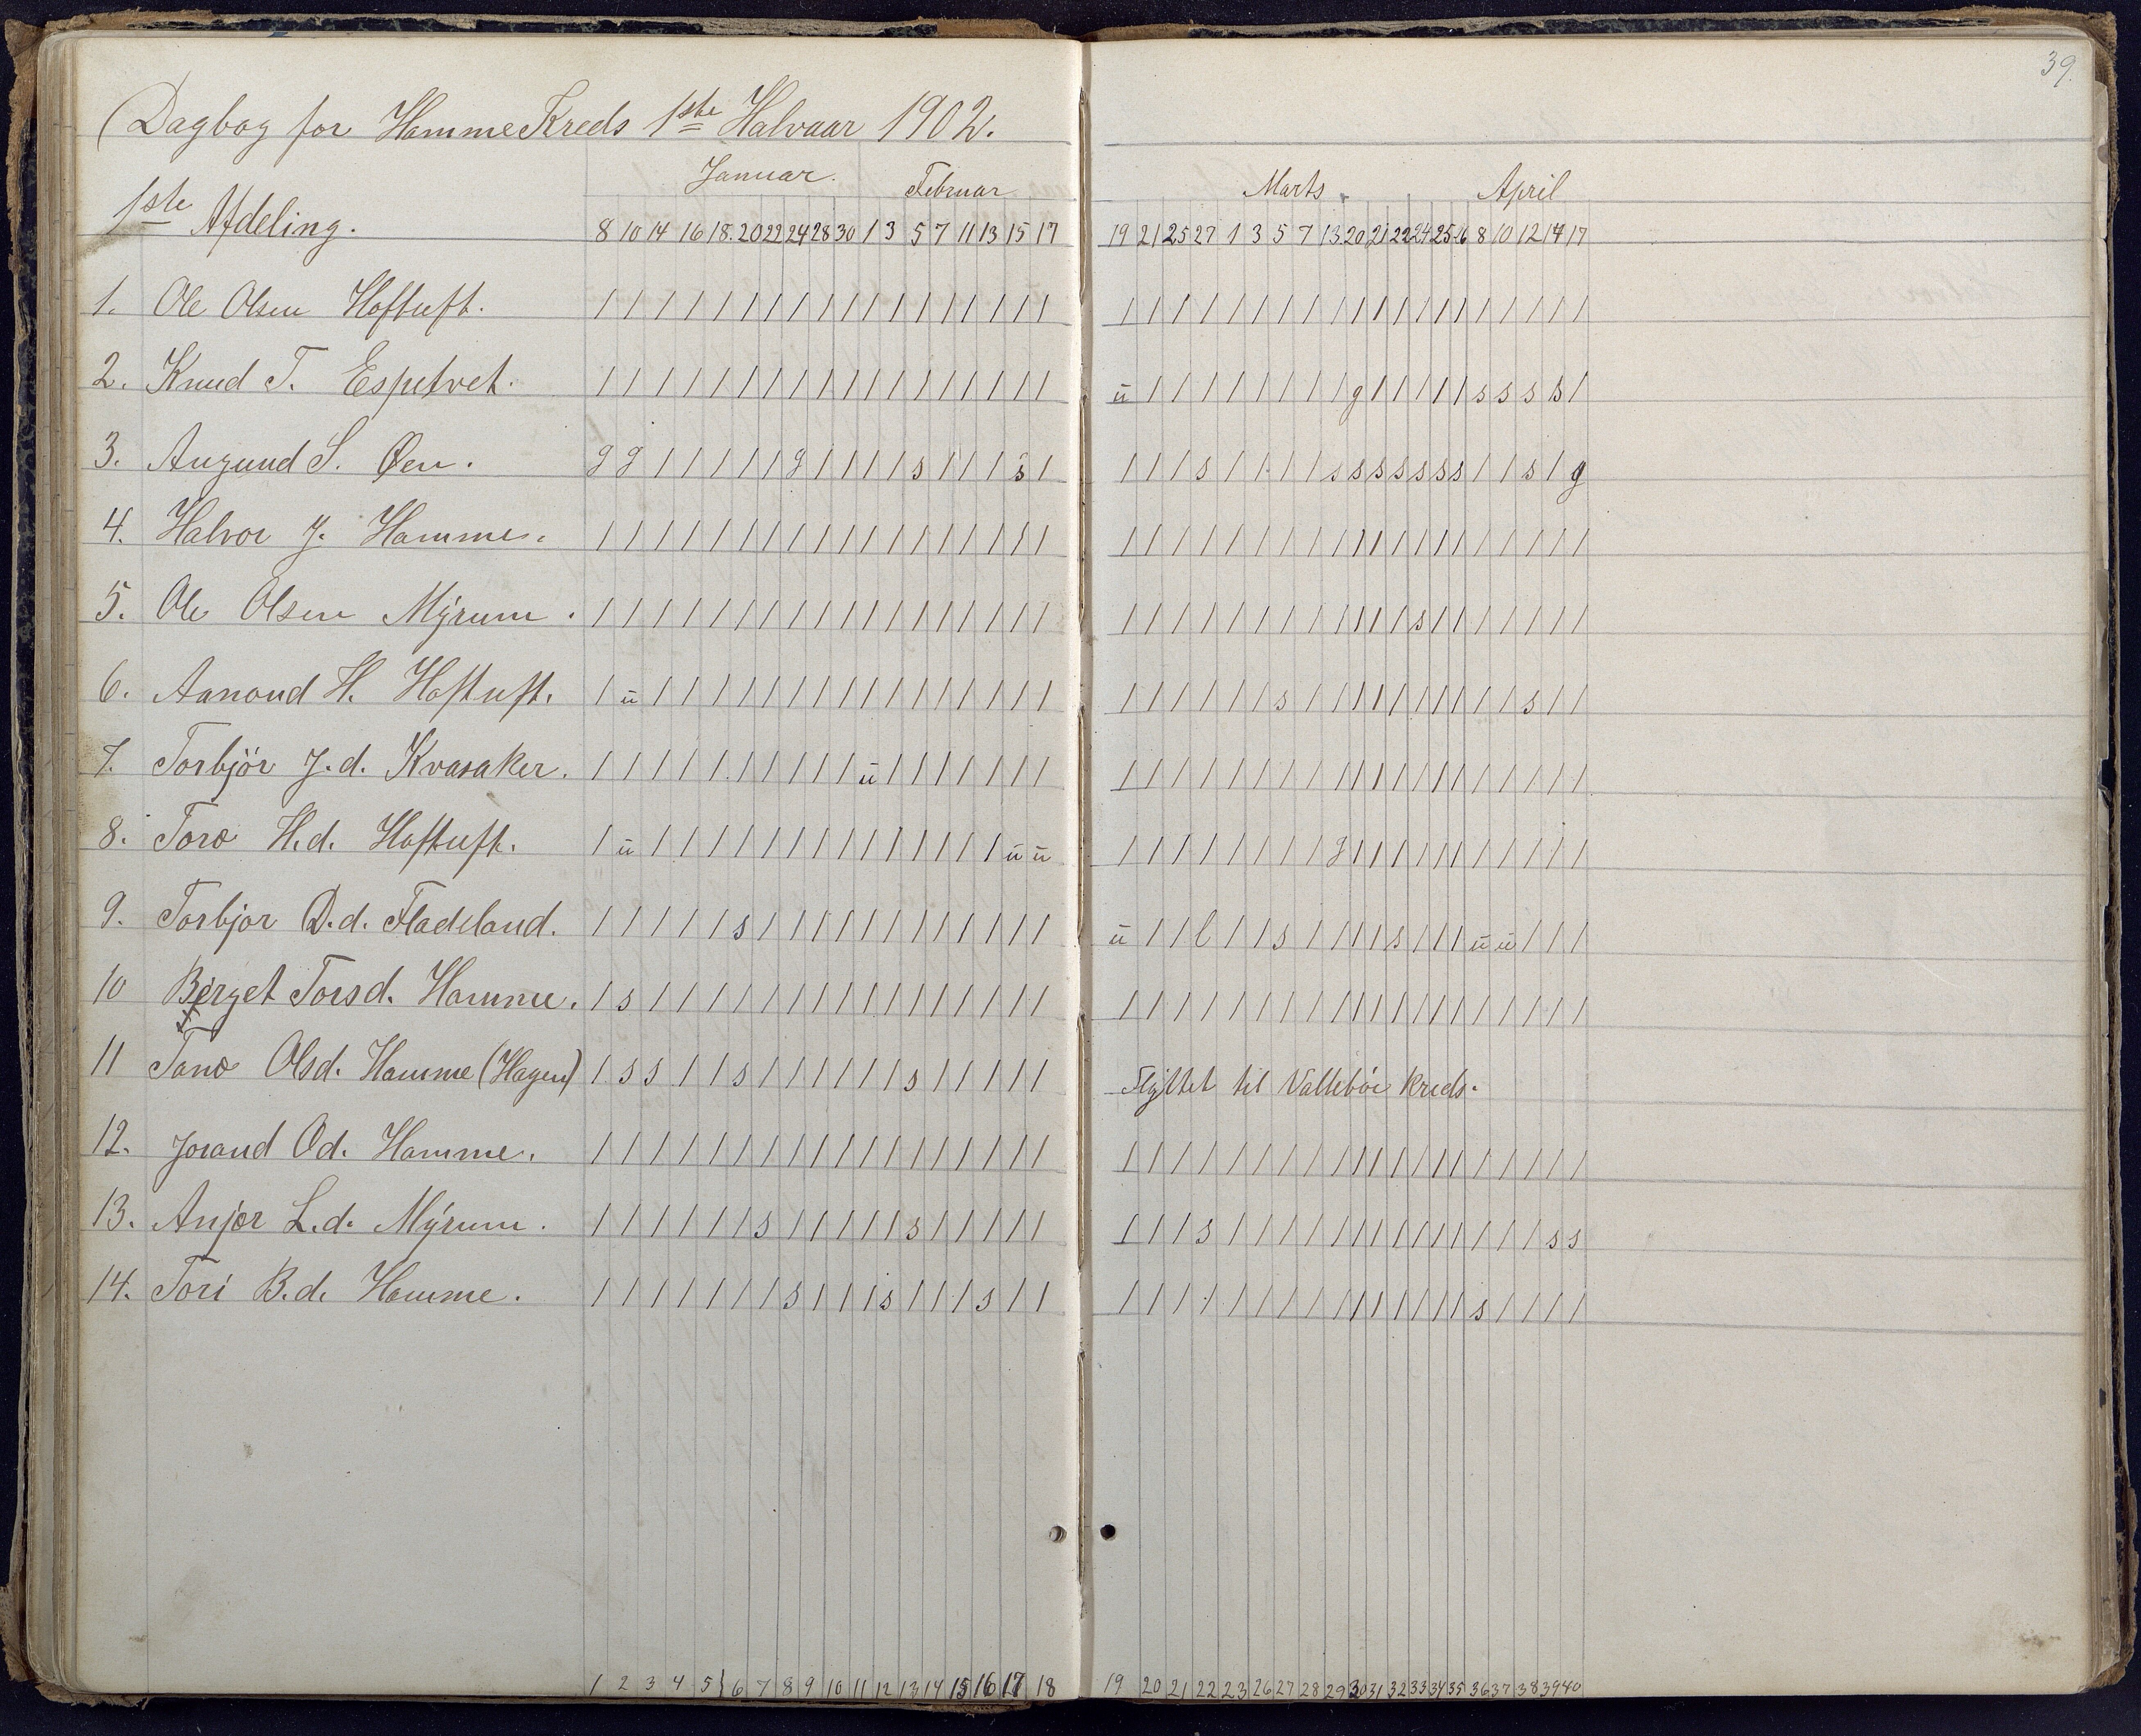 Dagbog for Hamme Kreds 1ste Halvaar 1902.
Januar. Februar
1ste Afdeling.
8 10 14 16 18. 20 22 24 28 30 1 3 5 7 11 13 15 17
1. Ole Olsen Hoftuft. / / / / / / / / / / / / / / / / / /
2. Knud T. Espetvet. / / / / / / / / / / / / / / / / / /
3. Augund S. Øen. g g / / / / / g / / / / s / / / s /
4. Halvor J. Hamme. / / / / / / / / / / / / / / / / / /
5. Ole Olsen Myrum. / / / / / / / / / / / / / / / / / /
6. Aanond H. Hoftuft. / ū / / / / / / / / / / / / / / / /
7. Torbjör J.d. Kvasaker. / / / / / / / / / / ū / / / / / / /
8. Toro H.d. Hoftuft. / ū / / / / / / / / / / / / / / ū ū
9. Torbjor D.d. Fladeland. / / / / / s / / / / / / / / / / / /
10 Berget Torsd. Hamme. / s / / / / / / / / / / / / / / / /
11 Tone Olsd. Hamme (Hagen) / s s / / s / / / / / / s / / / / /
12. Jorand Od. Hamme. / / / / / / / / / / / / / / / / / /
13. Anjer L.d. Myrum. / / / / / / s / / / / / s / / / / /
14. Tori B.d. Hamme. / / / / / / / s / / / s / / / s / /
1 2 3 4 5 6 7 8 9 10 11 12 13 14 15 16 17 18
39.
Marts. April
19 21 25 27 1 3 5 7 13 20 21 22 24 25 26 8 10 12 14 17
/ / / / / / / / / / / / / / / / / / / /
ū / / / / / / / / g / / / / / s s s s /
/ / / s / / / / s s s s s s s / / s / g
/ / / / / / / / / / / / / / / / / / / /
/ / / / / / / / / / / / s / / / / / / /
/ / / / / / s / / / / / / / / / / s / /
/ / / / / / / / / / / / / / / / / / / /
/ / / / / / / / g / / / / / / / / / / /
ū / / l / / s / / / / s / / / ū ū / / /
/ / / / / / / / / / / / / / / / / / / /
Flyttet til Vallebøe kreds.
/ / / / / / / / / / / / / / / / / / / /
/ / / s / / / / / / / / / / / / / / s s
/ / / / / / / / / / / / / / / s / / / /
19 20 21 22 23 26 27 28 29 30 31 32 33 34 35 36 37 38 39 40